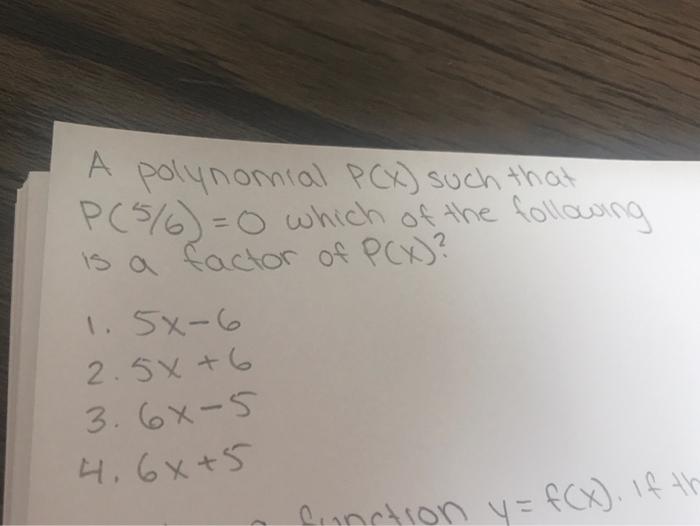 A polynomial P(x) such that
P(5/6)=0 which of the following
is a factor of P(x)?
1. 5x-6
2. 5x+6
3. 6x-5
4. 6x+5
function y=f(x). If